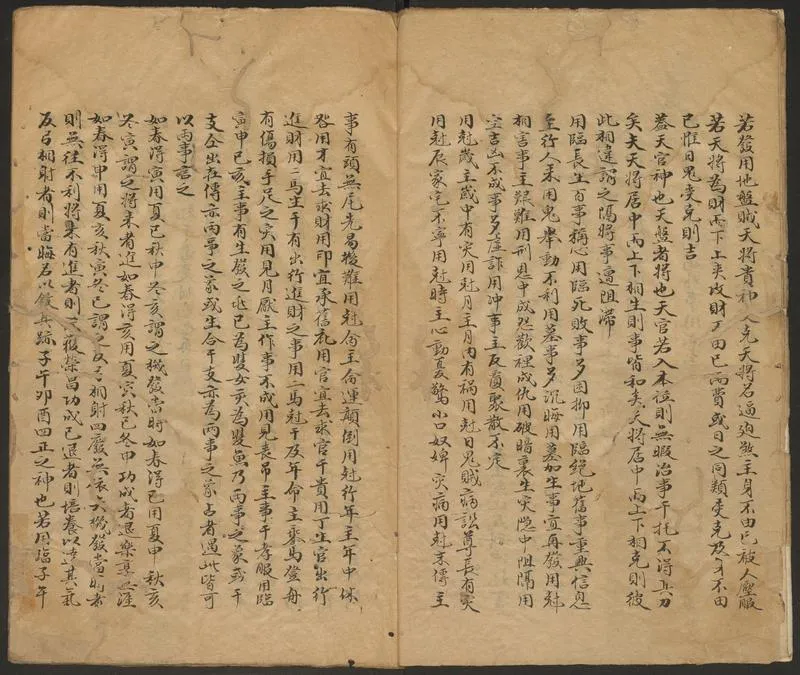 若發用地盤賊天將貴神又克天將名逼迫煞主身不由己被人壓服
若天將為財而下上夾攻財丁由已而費或日之同類受克及身不由
已惟日鬼受克則吉
蓋天官神也天盤者將也天官若入本位則無暇治事干托不得其力
矣夫天將居中而上下相生則事皆和矣天將居中而上下相克則彼
此相違謂之隔將事遭阻滯
用臨長生百事稱心用臨死敗事多困抑用臨絕地舊事重興信息
至行人來用鬼舉動不利用墓事多沉晦用墓加生事宜再發用尅
相害事主疑難用刑恩中成怨歡裡成仇用破暗裏生災隱中阻隔用
空吉凶不成事多虛詐用冲事主反覆聚散不定
用尅歲主歲中有災用尅月主月內有禍用尅日鬼賊病訟尊長有災
用尅辰家宅不寧用尅時主心動憂驚小口奴婢災病用尅末傳主
事有頭無尾先易後難用尅命主命運顛倒用尅行年主年中休
咎用才宜去求財用印宜承舊礼用官宜去求官干貴用丁主官出行
逃財用二馬主干有出行逃財之事用二馬尅干及年命主乘馬登舟
有傷損手足之災用見月厭主作事不成用見喪吊主事干孝服用臨
寅申已亥主事有生發之兆已為雙女亥為雙魚乃兩事之象或干
支全出在傳亦兩事之象或生合干支亦為兩事之象占者遇此皆可
以兩事言之
如春得寅用夏已秋申冬亥謂之機發當時如春得已用夏申秋亥
冬寅謂之將來者進如春得亥用夏寅秋已冬申功成者退樂莫
如春得申用夏亥秋寅冬已謂之反弓相射四廢無依六陽發當
則無往不利將來有進者則獲榮昌功成已退者則培養以達其氣
反弓相射者則當晦名以斂其跡子午卯酉四正之神也若用臨子午